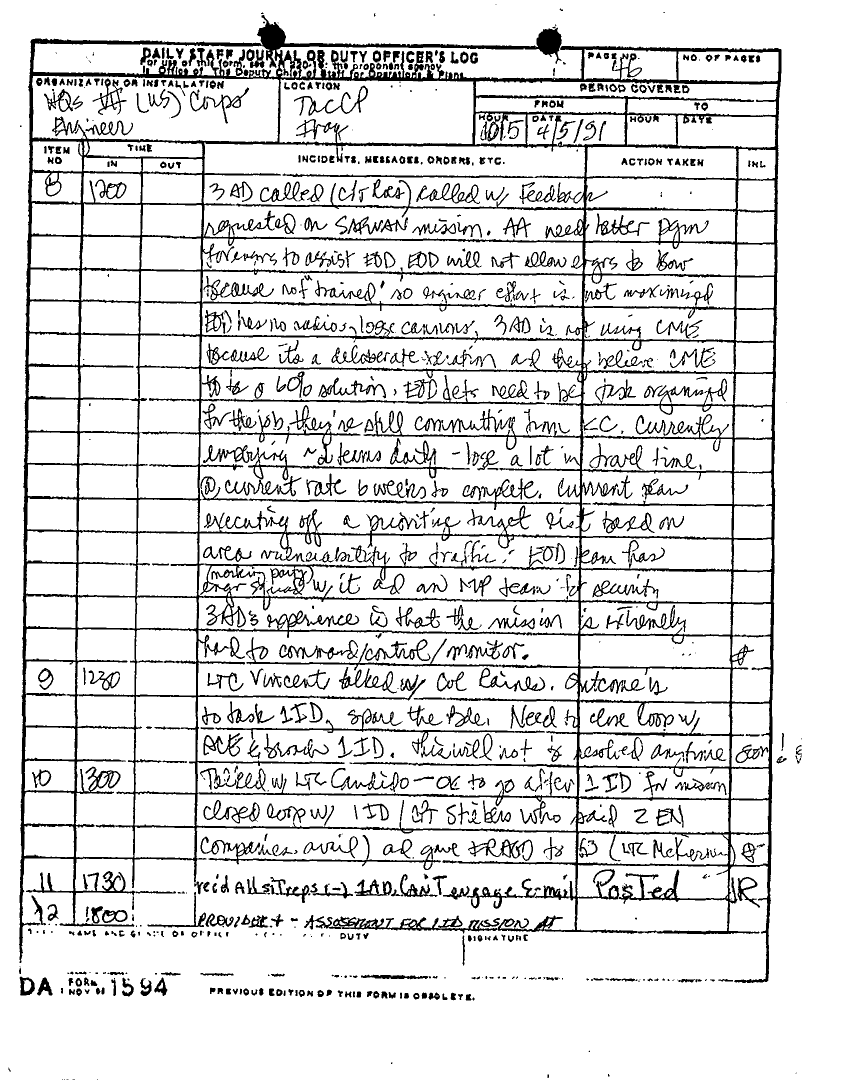 DAILY STAFF JOURNAL OR DUTY OFFICER'S LOG
For use of this form, see AR 220-15; the proponent agency
is Office of The Deputy Chief of Staff for Operations & Plans.
PAGE NO. 46
NO. OF PAGES
ORGANIZATION OR INSTALLATION
HQs VII (US) Corps
Engineer
LOCATION
TacCP
Iraq
PERIOD COVERED
FROM
TO
HOUR DATE HOUR DATE
1015 4/5/91
ITEM NO
TIME
IN OUT
INCIDENTS, MESSAGES, ORDERS, ETC.
ACTION TAKEN
INL
8 1200 3AD called (CPT) called w/ Feedback
requested on SAFWAN mission. AA need better pgm
for engrs to assist EOD, EOD will not allow engrs to blow
because not "trained", so engineer effort is not maximized
EOD has no radios, loose cannons, 3AD is not using CME
because it's a deliberate operation and they believe CME
to be a 60% solution. EOD dets need to be task organized
for the job, they're still commuting from KC. Currently
employing ~2 teams daily - lose a lot in travel time,
@ current rate 6 weeks to complete. Current plan
executing off a prioritized target list based on
area vulnerability to traffic. EOD team has
(working party)
engr squad w/ it ad an MP team for security
3AD's experience is that the mission is extremely
hard to command/control/monitor.
9 1230 LTC Vincent talked w/ Col Raines. Outcome is
to task 1ID, spare the Bde. Need to close loop w/
ACE & 1ID. This will not be resolved anytime soon!
10 1300 Talked w/ LTC Candido - OK to go after 1ID for mission
closed loop w/ 1ID (CPT Stiebers who said 2 EN
Companies avail) ad gave FRAGO to G3 (LTC McKiernan)
11 1730 rec'd All sitreps (-) 1AD, CAN'T engage E-mail PosTed JR
12 1800 PROVIDE + - ASSESSMENT FOR 1ID MISSION AT
TYPED NAME AND GRADE OF OFFICER OR OFFICIAL ON DUTY
SIGNATURE
DA FORM 1 NOV 1594
PREVIOUS EDITION OF THIS FORM IS OBSOLETE.